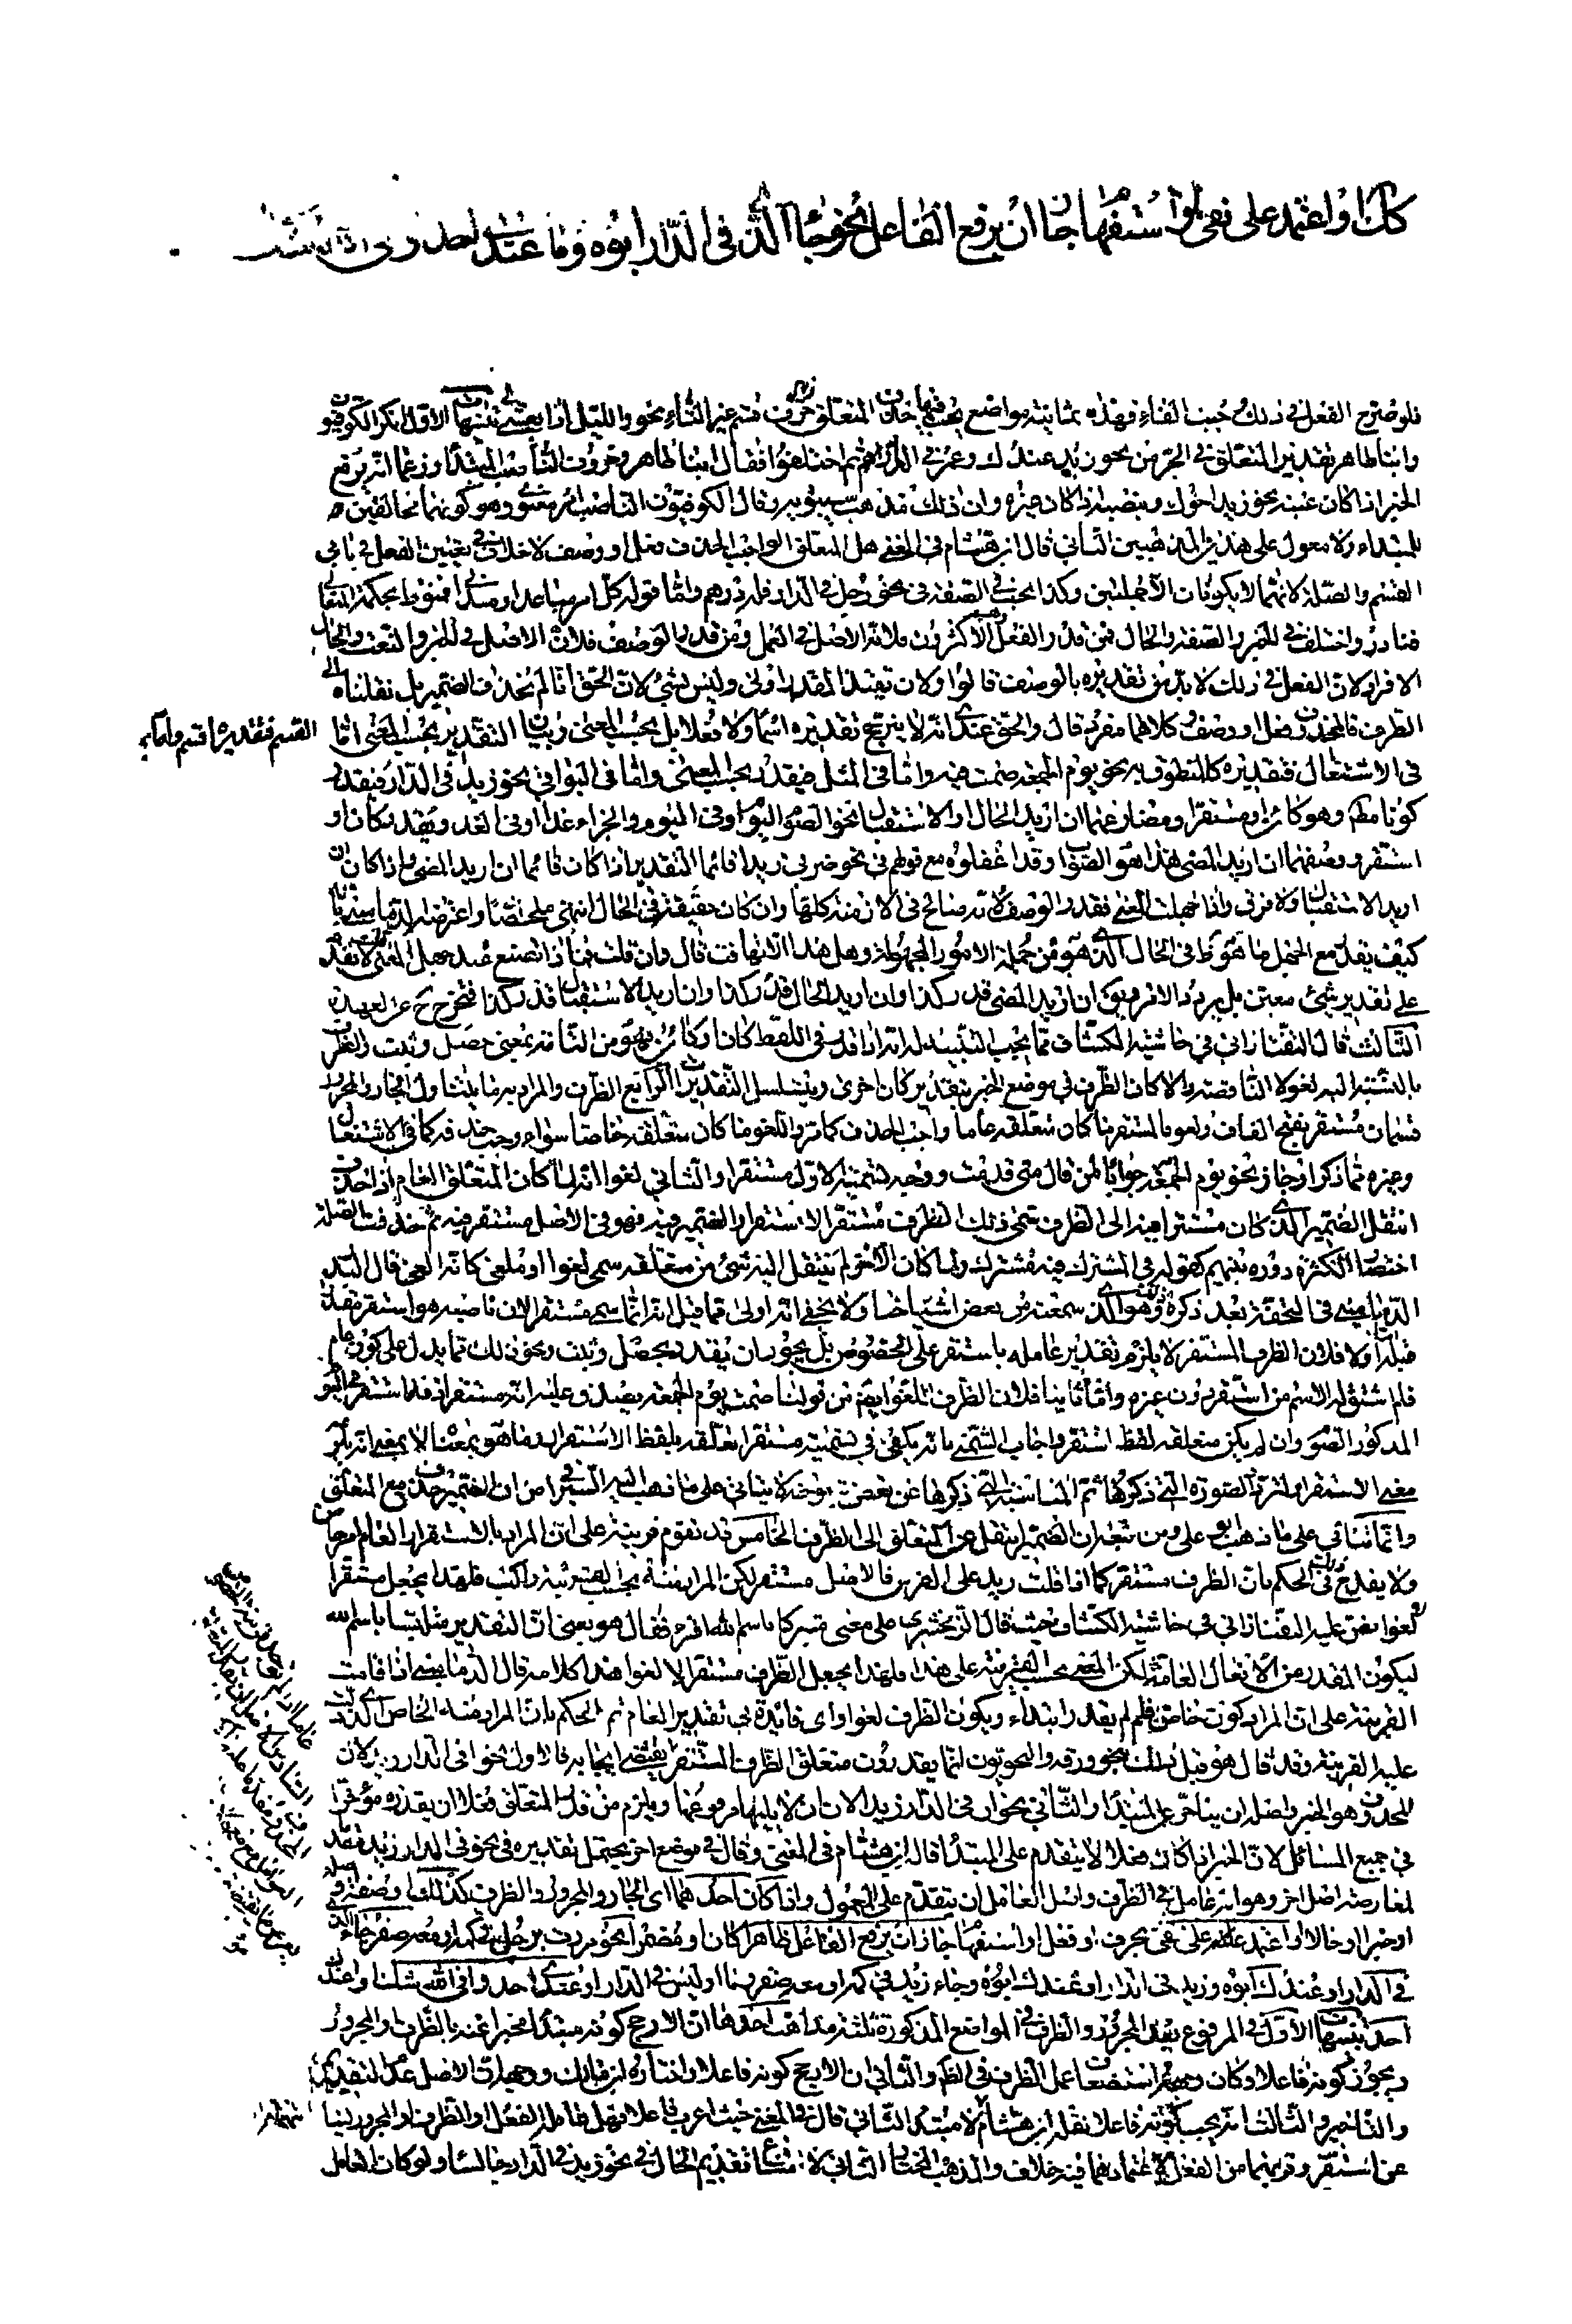 كذلك او اعتمد على نفي او استفهام جاز ان يرفع الفاعل نحو جاء الذي في الدار ابوه وما عندي احد و افي الله شك
فلو صرح الفعل في ذلك وجب الفاء فهذه ثمانية مواضع يجب فيها حذف المتعلق حرف قسم غير الباء نحو والليل اذا يغشى تنبيهات الاول انكر الكوفيون
وابنا طاهر تقدير المتعلق في الخبر من نحو زيد عندك وعمرو في الدار ثم اختلفوا فقال ابنا طاهر وخروف الناصب المبتدأ وزعما انه يرفع
الخبر اذا كان عينه نحو زيد اخوك وينصبه اذا كان غيره وان ذلك مذهب سيبويه وقال الكوفيون الناصب امر معنوي وهو كونهما مخالفين
للمبتداء ولا معول على هذين المذهبين الثاني قال ابن هشام في المغني هل المتعلق الواجب الحذف فعل او وصف لا خلاف في تعيين الفعل في بابي
القسم والصلة لانهما لا يكونان الا جملتين وكذا يجب في الصفة في نحو رجل في الدار فله درهم واما قوله كل امر مباعد او مدان فمنوط بحكمة المتعالي
فنادر واختلف في الخبر والصفة والحال فمن قدر الفعل وهم الاكثرون فلانه الاصل في العمل ومن قدر الوصف فلان الاصل في الخبر والنعت والحال
الافراد ولان الفعل في ذلك لا بد من تقديره بالوصف قالوا ولان تقليل المقدر اولى وليس بشيء لان الحق انا لم نحذف الضمير بل نقلناه الى
الظرف فالمحذوف فعل او وصف وكلاهما مفرد قال والحق عندي انه لا يترجح تقديره اسما ولا فعلا بل بحسب المعنى وبيان التقدير بحسب المعنى اما القسم فتقديره اقسم واما
في الاشتغال فتقديره كالمنطوق به نحو يوم الجمعة صمت فيه واما في المثل فيقدر بحسب المعنى واما في البواقي نحو زيد في الدار فيقدر
كونا مطلقا وهو كائن او مستقر او مضارعهما ان اريد الحال او الاستقبال نحو الصوم اليوم او في اليوم والجزاء غدا او في الغد ويقدر كان او
استقر او وصفهما ان اريد المضي هذا هو الصواب وقد اغفلوه مع قولهم في نحو ضربي زيدا قائما التقدير اذ كان قائما ان اريد المضي واذا كان ان
اريد الاستقبال ولا فرق واذا جهلت المعنى فقدر الوصف لانه صالح في الازمنة كلها وان كان حقيقة في الحال انتهى ملخصا واعترضه الدماميني بانه
كيف يقدر مع الجهل ما هو ظاهر في الحال الذي هو من جملة الامور المجهولة وهل هذا الا تهافت قال وان قلت فماذا تصنع عند جهل المعنى قلت لا يقدم
على تقدير شيء معين بل يردد الامر ويق ان اريد المضي قدر كذا وان اريد الحال قدر كذا وان اريد الاستقبال قدر كذا فتخرج ح عن العهدة
الثالث قال التفتازاني في حاشية الكشاف مما يجب التنبه له انه اذا قدر في اللفظ كان او كائن فهو من التامة بمعنى حصل وثبت والظرف
بالنسبة اليه لغو لا الناقصة والا كان الظرف في موضع الخبر بتقدير كان اخرى ويتسلسل التقديرات الرابع الظرف والمراد به ما يتناول الجار والمجرور
قسمان مستقر بفتح القاف ولغو فالمستقر ما كان متعلقه عاما واجب الحذف كما مر واللغو ما كان متعلقه خاصا سواء وجب حذفه كما في الاشتغال
وغيره مما ذكر او جاز نحو يوم الجمعة جوابا لمن قال متى قدمت ووجه تسمية الاول مستقرا والثاني لغوا انه لما كان المتعلق العام اذا حذف
انتقل الضمير الذي كان مستترا فيه الى الظرف سمي ذلك الظرف مستقرا لاستقرار الضمير فيه فهو في الاصل مستقر فيه ثم حذفت الصلة
اختصارا لكثرة دوره بينهم كقولهم في المشترك فيه مشترك ولما كان الآخر لم ينتقل اليه شيء من متعلقه سمي لغوا او ملغى كانه الغي قال البدر
الدماميني في التحفة بعد ذكره وهو الذي سمعته من بعض اشياخنا ولا يخفى انه اولى مما قيل انه انما سمي مستقرا لان ناصبه هو استقر مقدرا
قبله اما اولا فلان الظرف المستقر لا يلزم تقدير عامله باستقر على الخصوص بل يجوز ان يقدر بحصل وثبت ونحو ذلك مما يدل على كون عام
فلم اشتق له الاسم من استقر دون غيره واما ثانيا فلان الظرف اللغو ايضا من قولنا صمت يوم الجمعة يصدق عليه انه مستقر
المذكور الصور وان لم يكن متعلقه لفظ استقر واجاب الشمني بانه يكفي في تسميته مستقرا تعلقه بلفظ الاستقرار وما هو بمعناه لا بمعنى انه يلزم
معنى الاستقرار
وانما يتأتى على ما ذهب ابو علي ومن تبعه ان الضمير انتقل من المتعلق الى الظرف الخامس قد تقوم قرينة على ان المراد بالاستقرار العام امر خاص
ولا يقدح ذلك في الحكم بان الظرف مستقر كما اذا قلت زيد على الفرس فالاصل مستقر لكن المراد منه بحسب القرينة راكب فلهذا يجعل مستقرا
لا لغوا نص عليه التفتازاني في حاشية الكشاف حيث قال الزمخشري على معنى متبركا باسم الله اقرء فقال هو يعني ان التقدير متلبسا باسم الله
ليكون المقدر من الافعال العامة لكن المعنى بحسب القرينة على هذا فلهذا يجعل الظرف مستقرا لا لغوا هذا كلامه قال الدماميني اذا قامت
القرينة على ان المراد كون خاص فلم لم يقدر ابتداء ويكون الظرف لغوا واي فائدة في تقدير العام ثم الحكم بان المراد منه الخاص الذي دلت
عليه القرينة وقد قال هو قبل ذلك بنحو ورقة والنحويون انما يقدرون متعلق الظرف المستقر
المحذوف هو الخبر واصله ان يتاخر عن المبتدأ والثاني نحو ان في الدار زيدا لان ان لا يليها مرفوعها ويلزم من قدر المتعلق فعلا ان يقدره مؤخرا
في جميع المسائل لان الخبر اذا كان فعلا لا يتقدم على المبتدأ قاله ابن هشام في المغني وقال في موضع اخر يحتمل تقديره في نحو في الدار زيد مقدما
لمعارضة اصل اخر وهو انه عامل في الظرف واصل العامل ان يتقدم على المعمول واذا كان احدهما اي الجار والمجرور والظرف كذلك اي صلة او صفة
او خبرا او حالا او اعتمد على نفي بحرف او فعل او استفهام جاز ان يرفع الفاعل ظاهرا كان او مضمرا نحو مررت برجل في كمه او معه صقر وجاء الذي
في الدار او عندك ابوه وزيد في الدار او عندك ابوه وجاء زيد في كمه او معه صقر وما او ليس في الدار او عندي احد وافي الله شك او اعندك
احد تنبيهات الاول في المرفوع بعد المجرور والظرف في المواضع المذكورة ثلثة مذاهب احدها ان الارجح كونه مبتدأ مخبرا عنه بالظرف والمجرور
ويجوز كونه فاعلا والثاني ان الارجح كونه فاعلا واختاره ابن مالك ووجهه ان الاصل عدم التقديم
والتاخير والثالث انه يجب كونه فاعلا نقله ابن هشام لا مبتدأ الثاني قال في المغني حيث اعرب فاعلا فهل عامله الفعل او الظرف والمجرور لنيابتهما
عن استقر وقربهما من الفعل لاعتمادهما فيه خلاف والمذهب المختار الثاني لامتناع تقديم الحال في نحو زيد في الدار جالسا ولو كان العامل